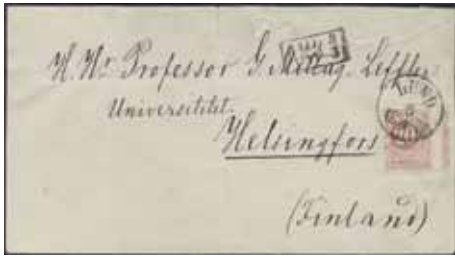 H. Hr Professor G. Mittag-Leffler
Universitetet.
Helsingfors
(Finland)
LUND